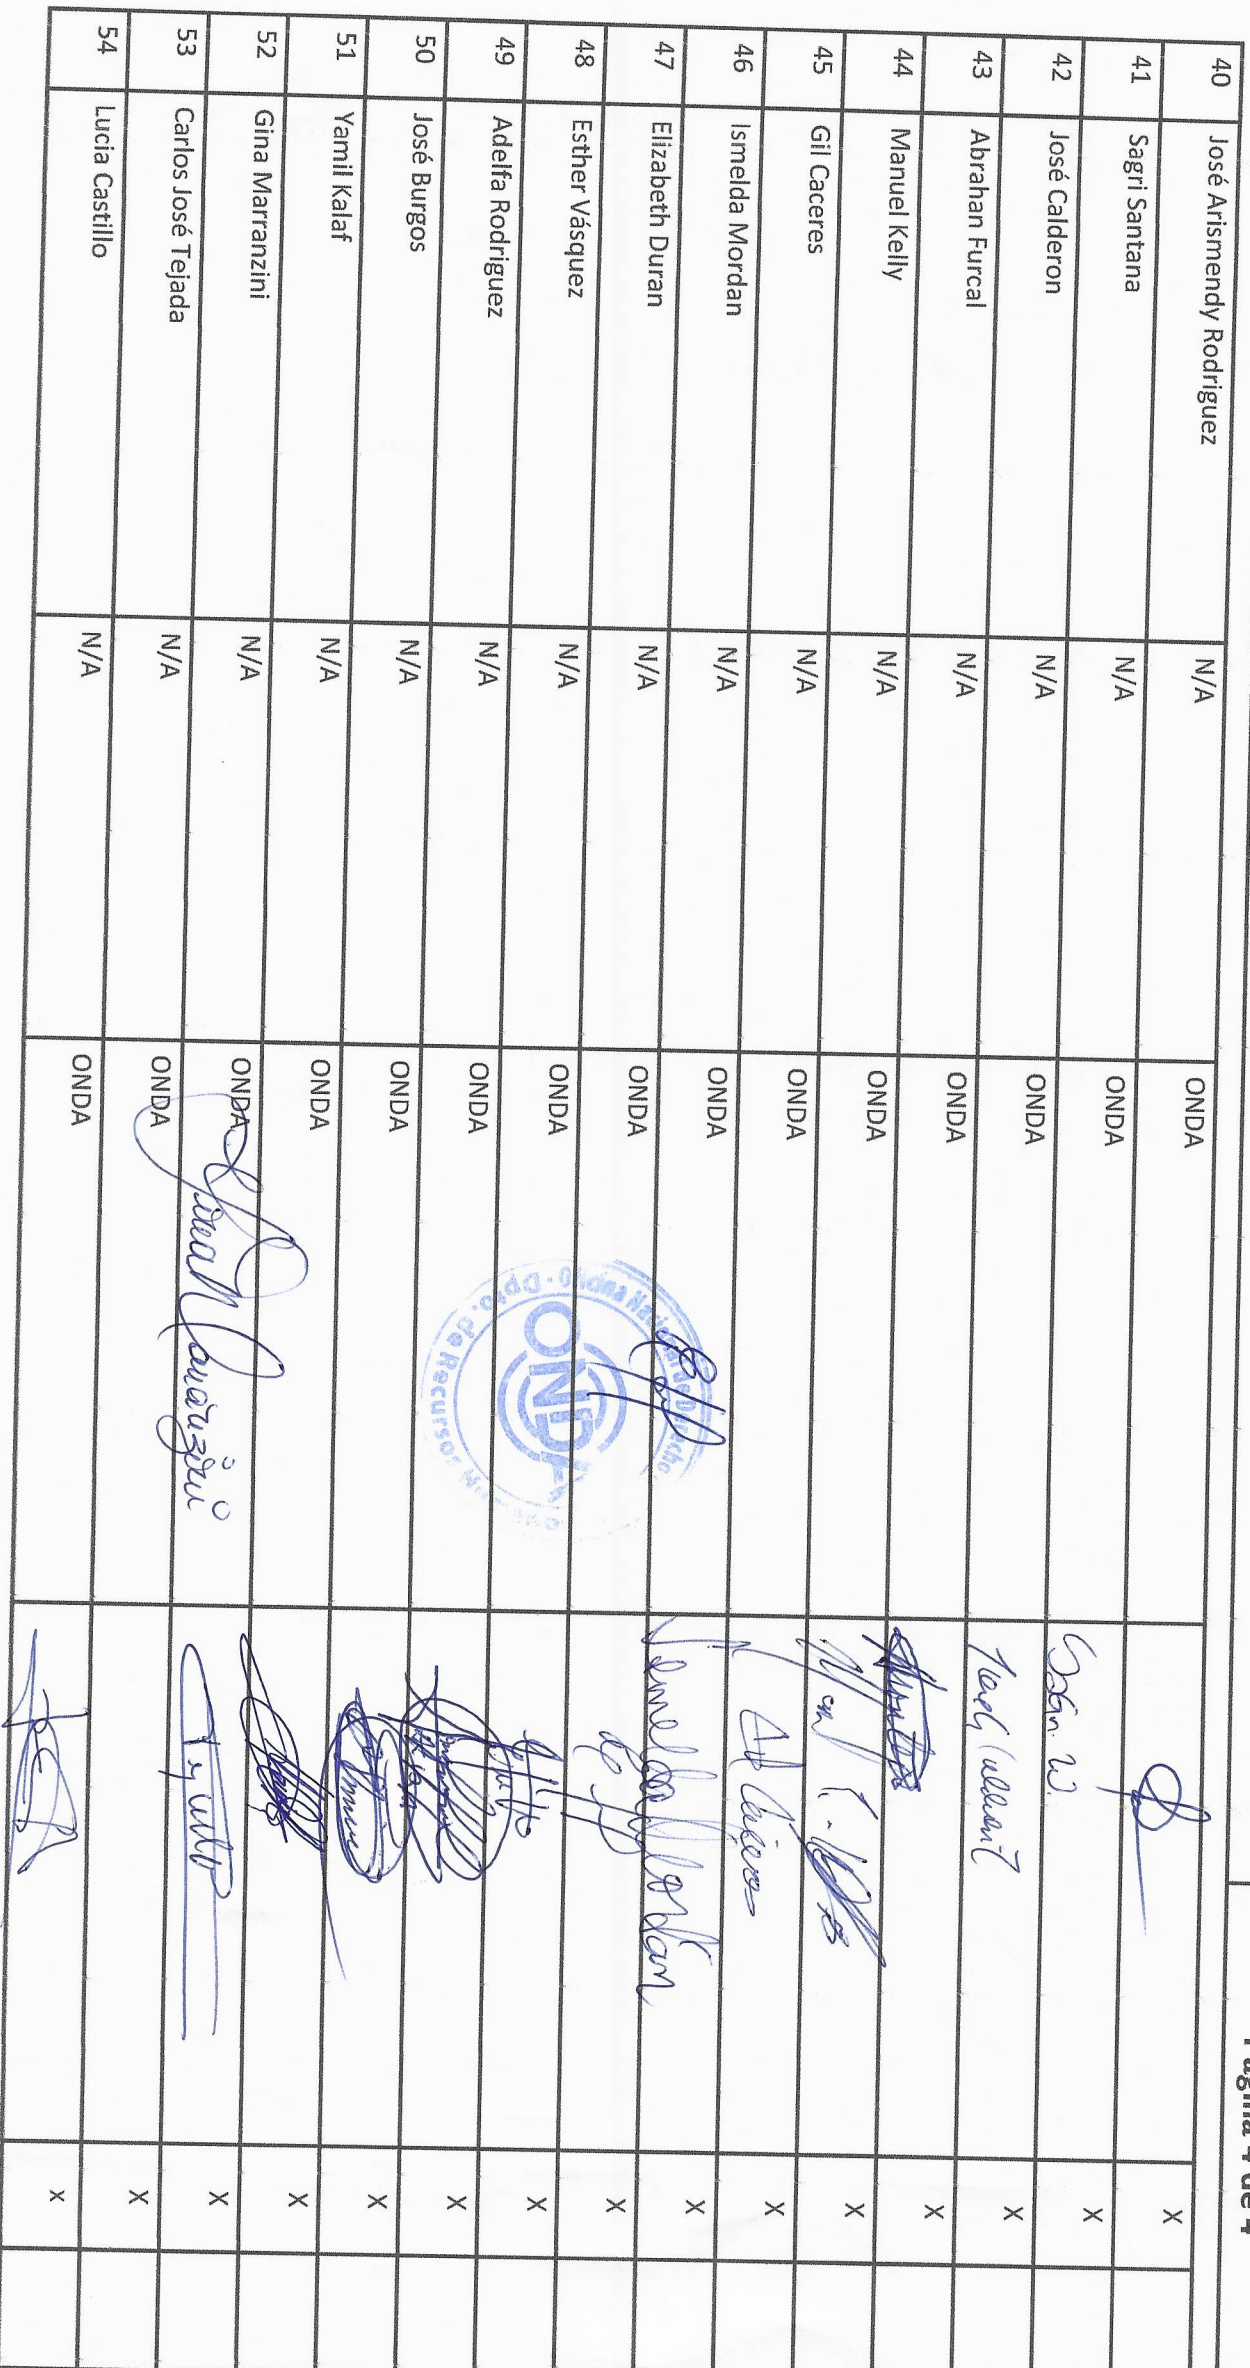 Página 4 de 4
40 José Arismendy Rodriguez N/A ONDA X
41 Sagri Santana N/A ONDA X
42 José Calderon N/A ONDA X
43 Abrahan Furcal N/A ONDA X
44 Manuel Kelly N/A ONDA X
45 Gil Caceres N/A ONDA X
46 Ismelda Mordan N/A ONDA Ismelda Mordán X
47 Elizabeth Duran N/A ONDA X
48 Esther Vásquez N/A ONDA X
49 Adelfa Rodriguez N/A ONDA X
50 José Burgos N/A ONDA X
51 Yamil Kalaf N/A ONDA X
52 Gina Marranzini N/A ONDA Gina Marranzini X
53 Carlos José Tejada N/A ONDA X
54 Lucia Castillo N/A ONDA X
Oficina Nacional de Derecho
ONDA
Dpto. de Recursos Humanos